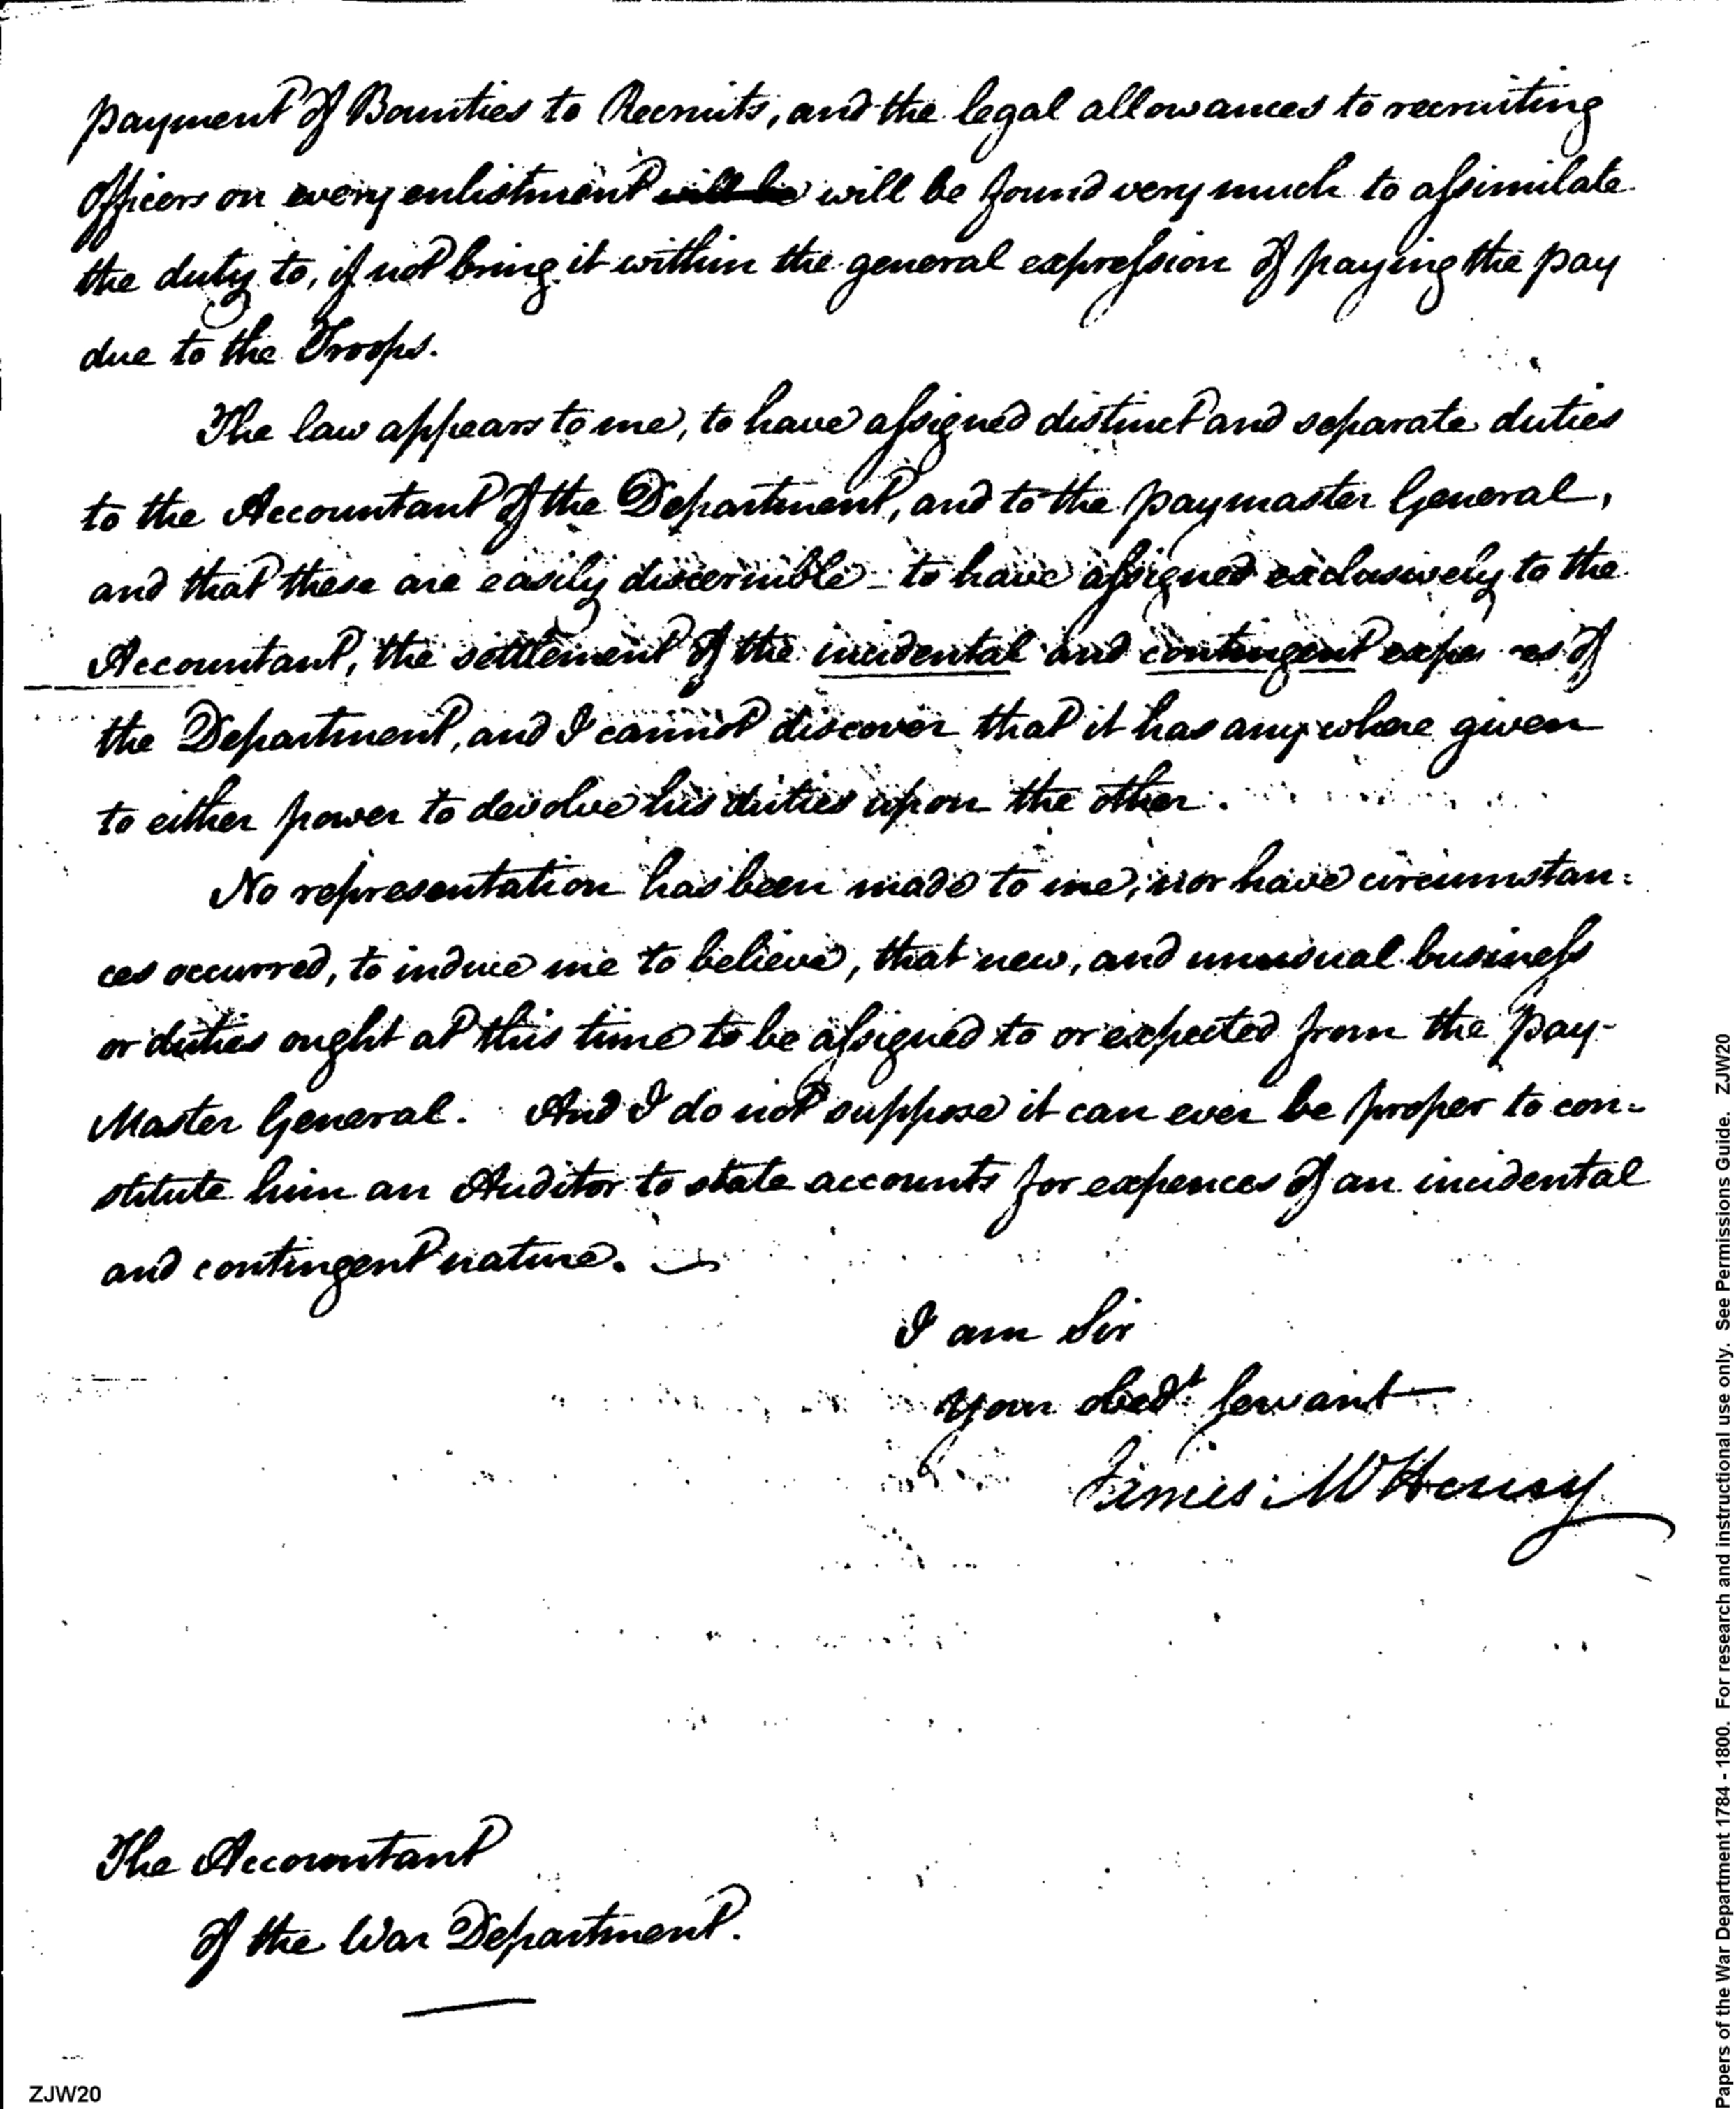 payment of Bounties to Recruits, and the legal allowances to recruiting
officers on every enlistment will be will be found very much to assimilate
the duty to, if not bring it within the general expression of paying the pay
due to the Troops.
The law appears to me, to have assigned distinct and separate duties
to the Accountant of the Department, and to the paymaster General,
and that these are easily discernible - to have assigned exclusively to the
Accountant, the settlement of the incidental and contingent of
the Department, and I cannot discover that it has any where given
to either power to devolve his duties upon the other.
No representation has been made to me, nor have circumstan=
ces occurred, to induce me to believe, that new, and unusual business
or duties ought at this time to be assigned to or expected from the Pay-
Master General. And I do not suppose it can ever be proper to con=
stitute him an Auditor to state accounts for expences of an incidental
and contingent nature.
I am Sir
your obedt. servant
James McHenry
The Accountant
of the War Department.
ZJW20
Papers of the War Department 1784 - 1800. For research and instructional use only. See Permissions Guide. ZJW20